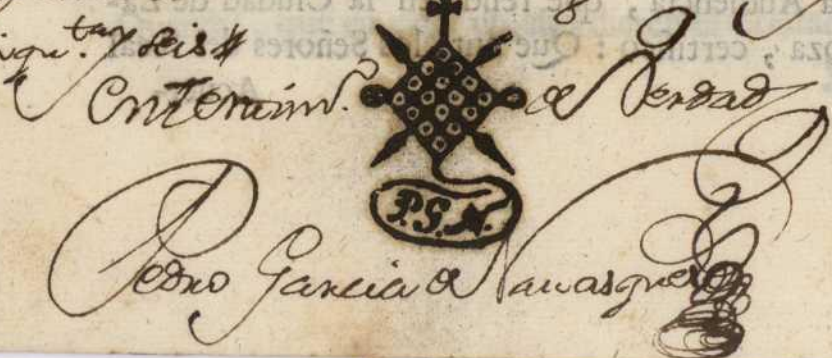 iqu.ta y seis //
En Testim.o de Verdad
P.G.N.
Pedro Garcia de Nauasques